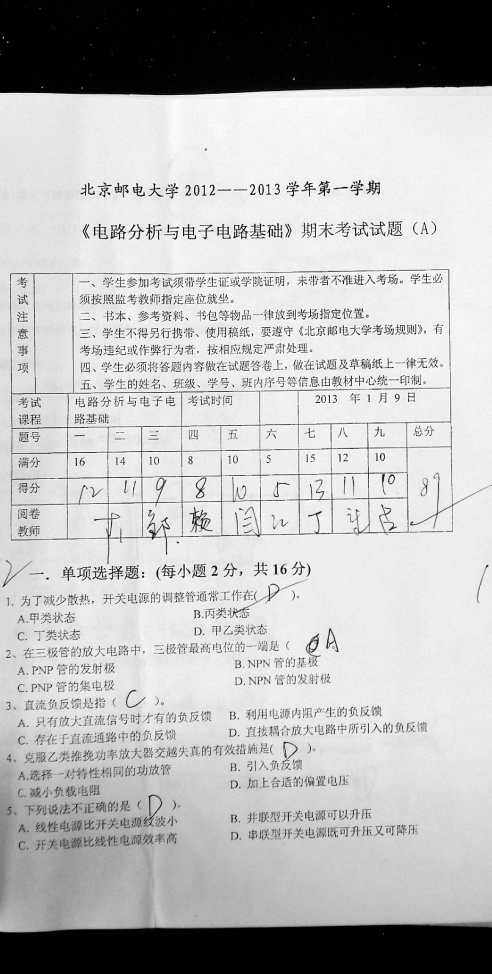 北京邮电大学 2012——2013 学年第一学期
《电路分析与电子电路基础》期末考试试题（A）
考试注意事项
一、学生参加考试须带学生证或学院证明，未带者不准进入考场。学生必
须按照监考教师指定座位就坐。
二、书本、参考资料、书包等物品一律放到考场指定位置。
三、学生不得另行携带、使用稿纸，要遵守《北京邮电大学考场规则》，有
考场违纪或作弊行为者，按相应规定严肃处理。
四、学生必须将答题内容做在试题答卷上，做在试题及草稿纸上一律无效。
五、学生的姓名、班级、学号、班内序号等信息由教材中心统一印制。
考试课程 电路分析与电子电路基础 考试时间 2013 年 1 月 9 日
题号 一 二 三 四 五 六 七 八 九 总分
满分 16 14 10 8 10 5 15 12 10
得分 12 11 9 8 10 5 13 11 10 89
阅卷教师 郭 赖 闫 江 丁
一．单项选择题：(每小题 2 分，共 16 分)
1. 为了减少散热，开关电源的调整管通常工作在( D )。
A.甲类状态 B.丙类状态
C. 丁类状态 D. 甲乙类状态
2、在三极管的放大电路中，三极管最高电位的一端是（ A
A. PNP 管的发射极 B. NPN 管的基极
C. PNP 管的集电极 D. NPN 管的发射极
3、直流负反馈是指（ C ）。
A. 只有放大直流信号时才有的负反馈 B. 利用电源内阻产生的负反馈
C. 存在于直流通路中的负反馈 D. 直接耦合放大电路中所引入的负反馈
4、克服乙类推挽功率放大器交越失真的有效措施是( D )。
A.选择一对特性相同的功放管 B. 引入负反馈
C. 减小负载电阻 D. 加上合适的偏置电压
5、下列说法不正确的是（ D ）。
A. 线性电源比开关电源纹波小 B. 并联型开关电源可以升压
C. 开关电源比线性电源效率高 D. 串联型开关电源既可升压又可降压